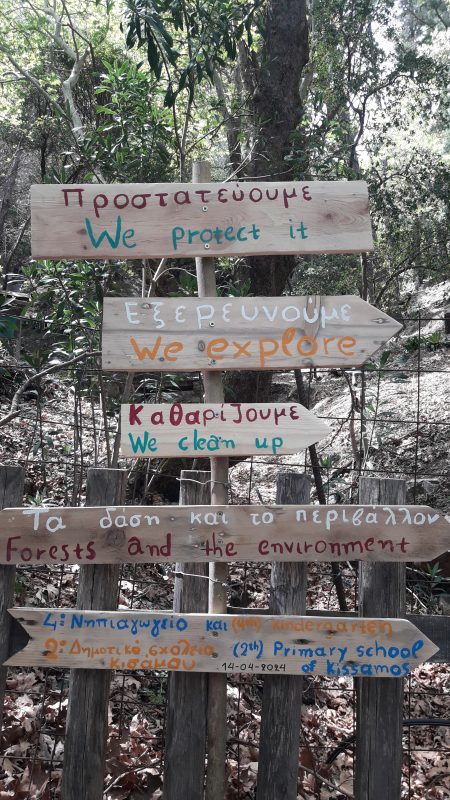 Προστατεύουμε
We protect it
Εξερευνούμε
We explore
Καθαρίζουμε
We clean up
Τα δάση και το περιβάλλον
Forests and the environment
4ο Νηπιαγωγείο και (4th) kindergarten
2ο Δημοτικό σχολείο (2th) Primary school
Κισάμου 14-04-2024 of Kissamos